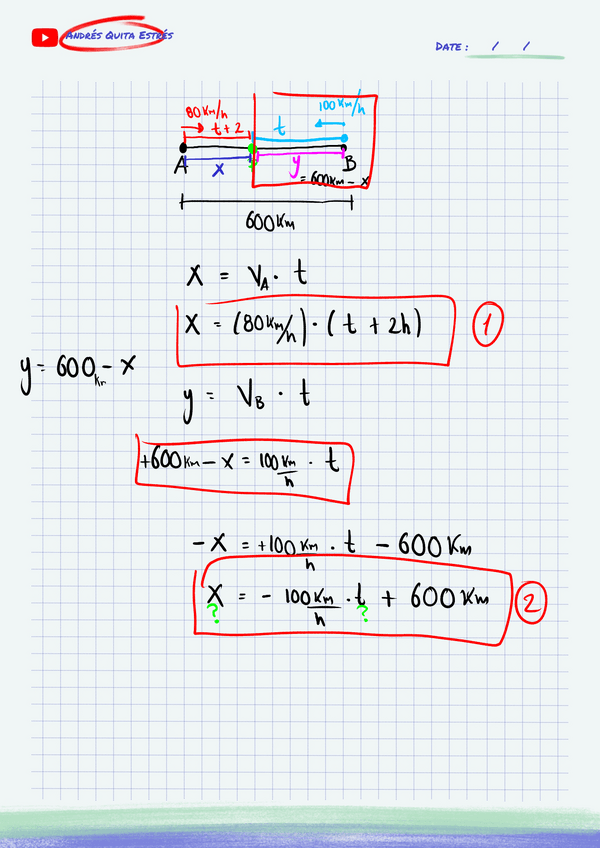 Andrés Quita Estrés
Date: / /
80 Km/h
100 Km/h
t+2
t
A
x
y
B
= 600 Km - x
600 Km
x = VA · t
x = (80 Km/h) · (t + 2h)
1
y = 600 Km - x
y = VB · t
+600 Km - x = 100 Km/h · t
-x = +100 Km/h · t - 600 Km
x = - 100 Km/h · t + 600 Km
2
? ?